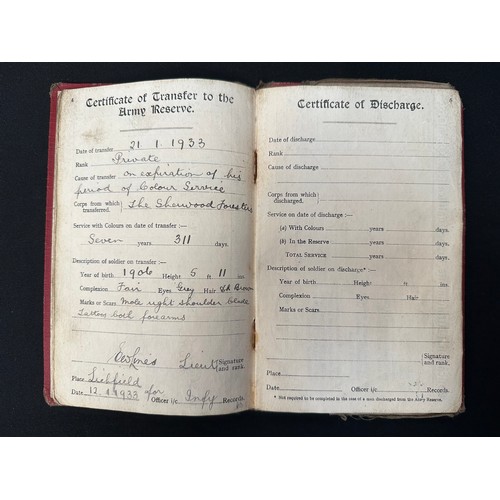 4
Certificate of Transfer to the
Army Reserve.
Date of transfer 21 1 1933
Rank Private
Cause of transfer on expiration of his
period of Colour Service
Corps from which transferred. The Sherwood Foresters
Service with Colours on date of transfer :—
Seven years 311 days.
Description of soldier on transfer :—
Year of birth 1906 Height 5 ft 11 ins.
Complexion Fair Eyes Grey Hair Brown
Marks or Scars Mole right shoulder blade
Tattoos both forearms
Lieut Signature and rank.
Place Lichfield
Date 12.1.1933 for Officer i/c Infy Records.
5
Certificate of Discharge.
Date of discharge
Rank
Cause of discharge
Corps from which discharged.
Service on date of discharge :—
(a) With Colours years days.
(b) In the Reserve years days.
TOTAL SERVICE years days.
Description of soldier on discharge* :—
Year of birth Height ft ins.
Complexion Eyes Hair
Marks or Scars
Signature and rank.
Place
Date Officer i/c Records.
* Not required to be completed in the case of a man discharged from the Army Reserve.